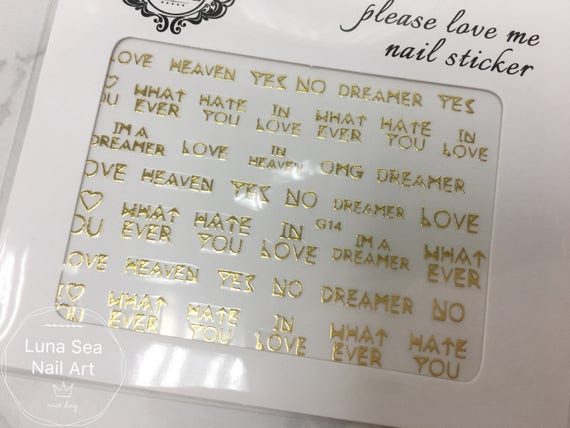 please love me
nail sticker
LOVE HEAVEN YES NO DREAMER YES
♡ WHAT HATE IN WHAT HATE IN
OU EVER YOU LOVE EVER YOU LOVE
I'M A IN
DREAMER LOVE HEAVEN OMG DREAMER
OVE HEAVEN YES NO DREAMER LOVE
♡ WHAT HATE IN G14 I'M A WHAT
OU EVER YOU LOVE DREAMER EVER
LOVE HEAVEN YES NO DREAMER NO
I♡ WHAT HATE IN WHAT HATE
OU EVER YOU LOVE EVER YOU
Luna Sea
Nail Art
nice day